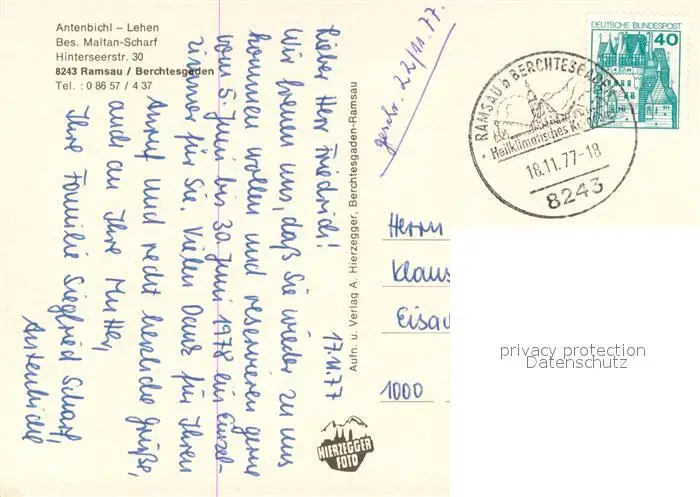 Antenbichl – Lehen
Bes. Maltan-Scharf
Hinterseerstr. 30
8243 Ramsau / Berchtesgaden
Tel. : 0 86 57 / 4 37
17.11.77
Lieber Herr Friedrich!
Wir freuen uns, daß Sie wieder zu uns
kommen wollen und reservieren gerne
vom 5. Juni bis 30. Juni 1978 ein Einzel-
zimmer für Sie. Vielen Dank für Ihren
Anruf und recht herzliche Grüße,
auch an Ihre Mutter,
Ihre Familie Siegfried Scharf,
Antenbichl
Aufn. u. Verlag A. Hierzegger, Berchtesgaden-Ramsau
HIERZEGGER
FOTO
geschr. 22/11.77.
DEUTSCHE BUNDESPOST
40
RAMSAU b BERCHTESGADEN
Heilklimatisches
18.11.77-18
8243
Herrn
Klaus
Eisa
1000
privacy protection
Datenschutz